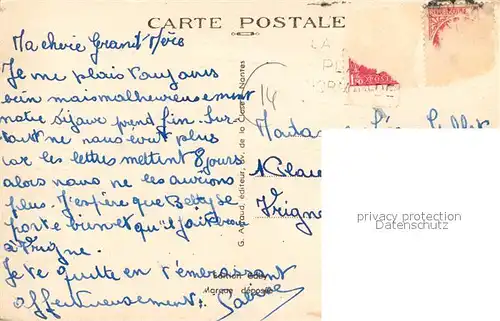 CARTE POSTALE
Ma chérie Grand'Mère
Je me plais toujours
bien mais malheureusement
notre séjour prend fin. Sur-
tout ne nous écrit plus
car les lettres mettent 8 jours
alors nous ne les aurions
plus. J'espère que Betty se
porte bien et qu'il fait beau
à Vrigne.
Je te quitte en t'embrassant
affectueusement.
G. Artaud, éditeur, av. de la Close, Nantes
Edition Gaby
Marque déposée
14
LA
Madame
Vrigne
privacy protection
Datenschutz